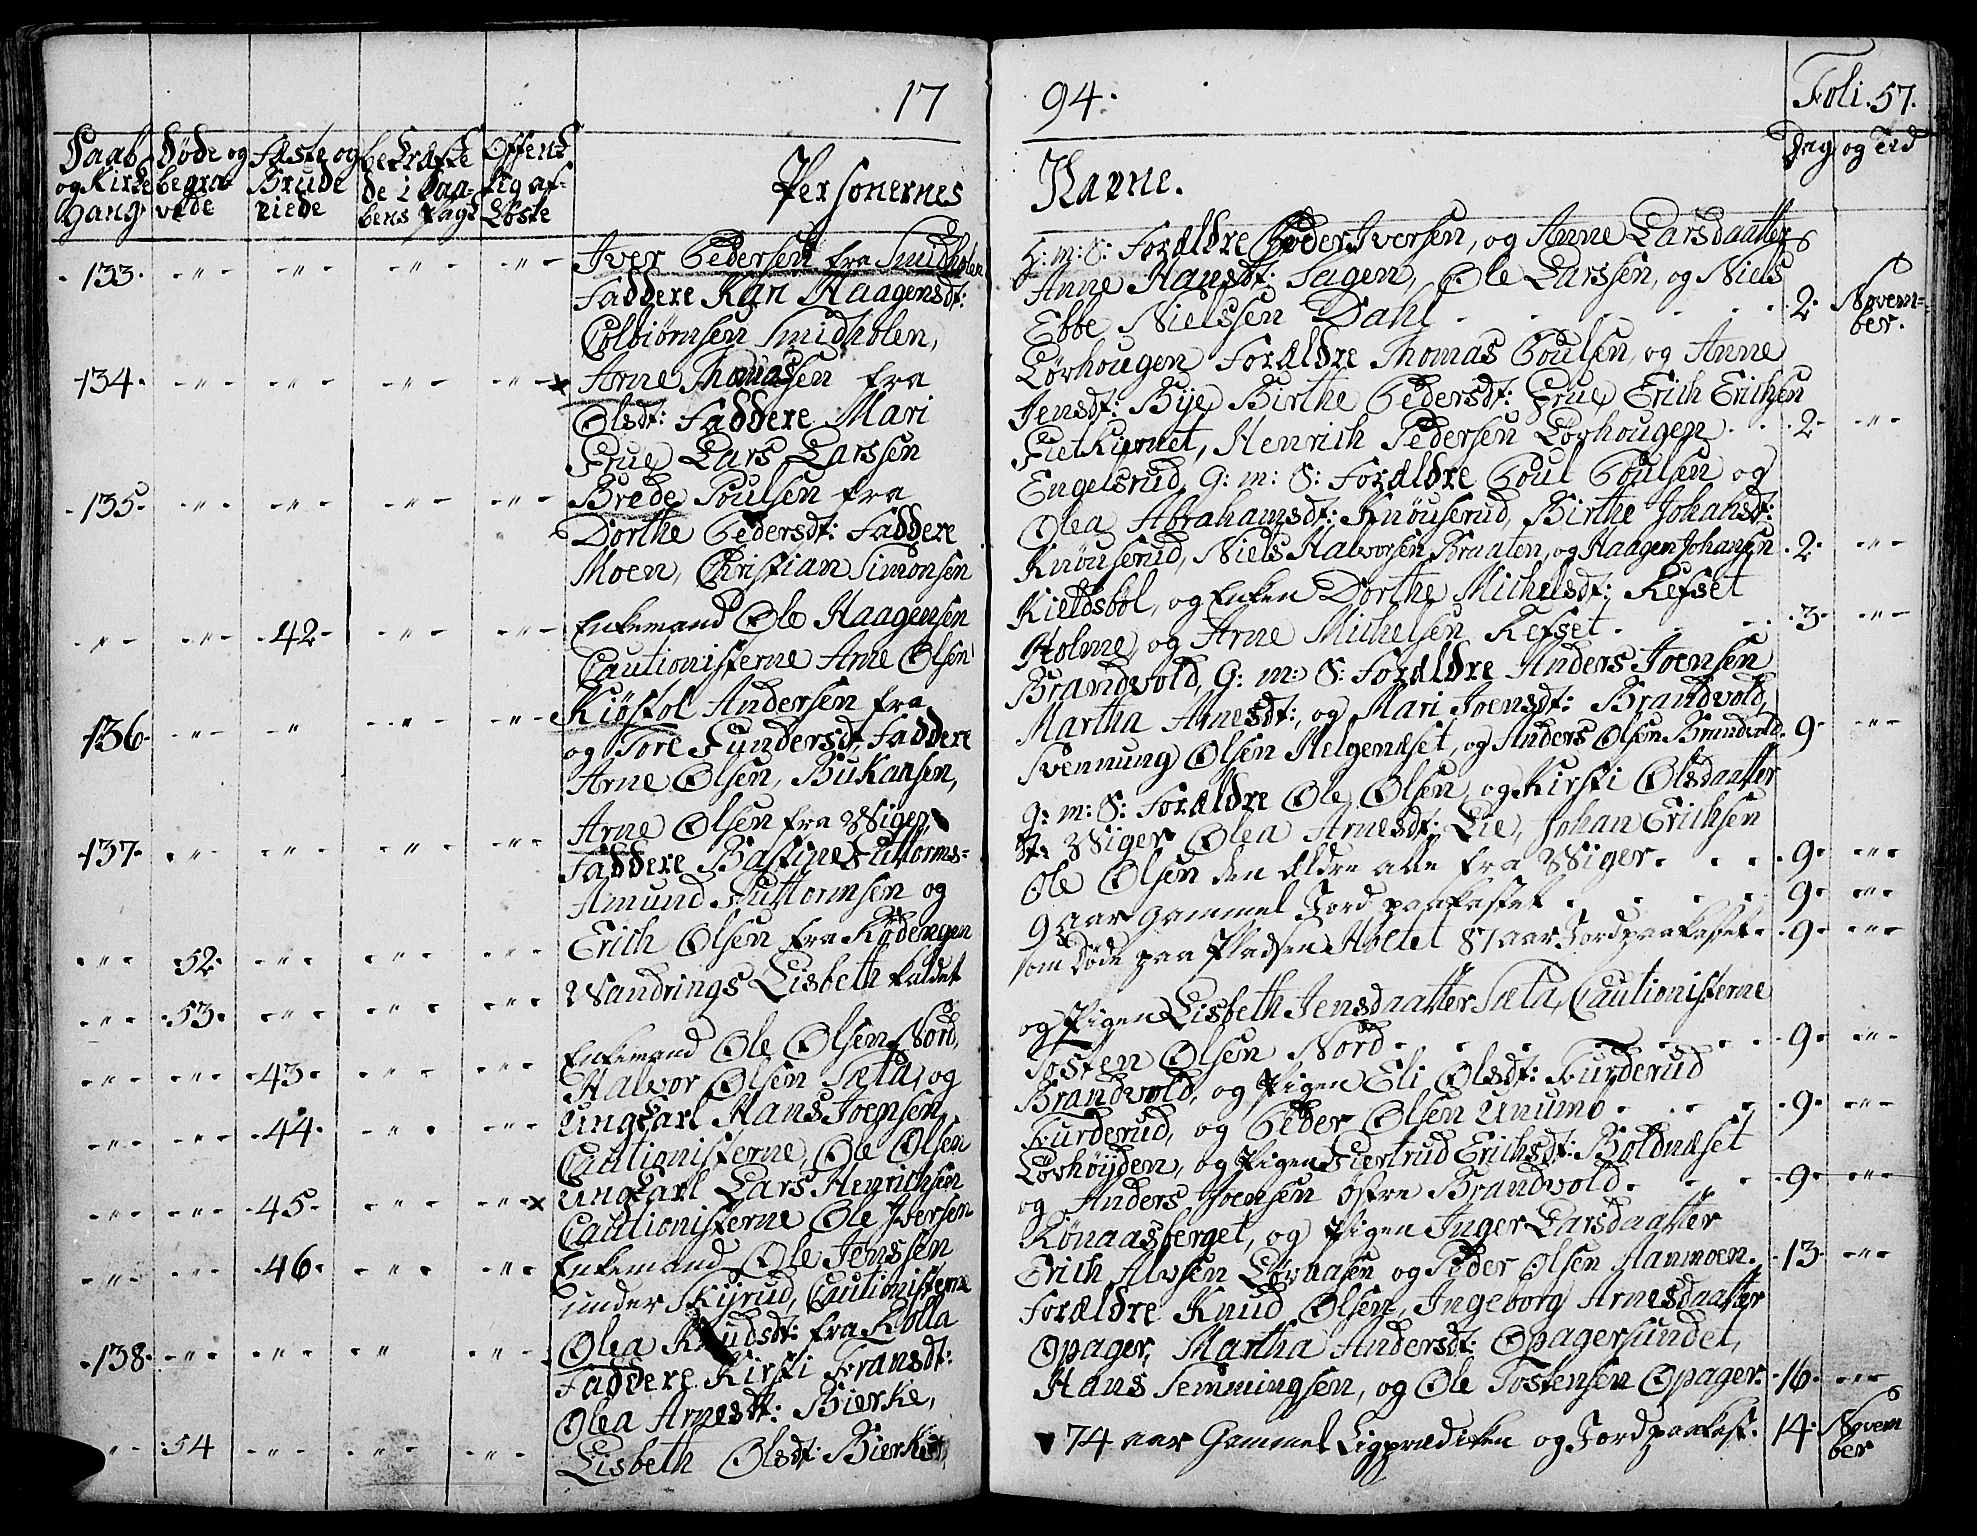 17 94. Foli. 57.
Daab og Kirke Gang
Døde og begravede
Fæste og Brudeviede
bekræftede i Daabens Pagt
Offentlig af Løste
Personernes Navne.
Dag og Tid
133. Iver Pedersen fra Smidholen G: m: S: Forældre Peder Iversen, og Anne Larsdaatter
Faddere Kari Haagensdt: Anne Hansdt: Sagen, Ole Larssen, og Niels
Colbiørnsen Smidholen, Ebbe Nielssen Dahl . . . 2. Novem-ber.
134. x Arne Thomassen fra Lørhougen Forældre Thomas Poulsen, og Anne
Olsdt: Faddere Mari Jensdt: Bye, Birthe Pedersdt: Frue, Erich Erichsen
Frue, Lars Larssen Fietkiernet, Henrich Pedersen Lørhougen . . 2 - " -
135. Brede Poulsen fra Engelsrud, G: m: S: Forældre Poul Poulsen og
Dorthe Pedersdt: Faddere Olea Abrahamsdt: Knøuserud, Birthe Johansdt:
Moen, Christian Simonsen Knøuserud, Niels Halvorsen Braaten, og Haagen Johansen . 2. - " -
42 - Enkemand Ole Haagensen Kieldsbøl, og Enken Dorthe Michelsdt: Refset
Cautionisterne Arne Olsen Holme, og Arne Michelsen Refset. . . 3. - " -
136. Kiøstol Andersen fra Brandvold, G: m: S: Forældre Anders Joensen
og Tore Gundersdt, Faddere Martha Arnesdt:, og Mari Joensdt: Brandvold,
Arne Olsen, Bukaasen, Svennung Olsen Helgenæset, og Anders Olsen Brandvold. 9 - " -
137. Arne Olsen fra Wiger, g: m: S: Forældre Ole Olsen, og Kirsti Olsdaatter
Faddere Bastine Guttorms= dt: Wiger Olea Arnesdt: Lie, Johan Erichsen
Amund Guttormsen og Ole Olsen den ældre alle fra Wiger. . . 9. - " -
52. Erich Olsen fra Kødengen 9 aar gammel Jord paakastet . . . 9. - " -
53. Wandrings Lisbeth kaldet som døde paa Pladsen Holtet 87 aar Jordpaakastet. . 9. - " -
43. Enkemand Ole Olsen Nord, og Pigen Lisbeth Jensdaatter Sæta, Cautionisterne
Halvor Olsen Sæta, og Tosten Olsen Nord . . . 9. - " -
44. Ungkarl Hans Joensen Brandvold, og Pigen Eli Olsdt: Furderud
Cautionisterne, Ole Olsen Furderud, og Peder Olsen Unumb . . . 9. - " -
45. x Ungkarl Lars Henrichsen Løvhøyden, og Pigen Giertrud Erichsdt: Boldnæset
Cautionisterne Ole Iversen og Anders Joensen østre Brandvold . . . 9. - " -
46. Enkemand Ole Jenssen Rønaasberget, og Pigen Inger Larsdaatter
under Skyrud, Cautionisterne Erich Alvsen Løvaasen og Peder Olsen Aanmoen. 13 - " -
138. Olea Knudsdt: fra Kolla Forældre Knud Olsen, Ingeborg Arnesdaatter
Faddere Kirsti Fransdt: Opager, Martha Andersdt: Opagersundet,
Olea Arnesdt: Bierke, Hans Semmingsen, og Ole Tostensen Opager. 16. - " -
54 Lisbeth Olsdt: Bierke, 74 aar Gammel Ligprædiken og Jordpaakast. 14. Novem ber